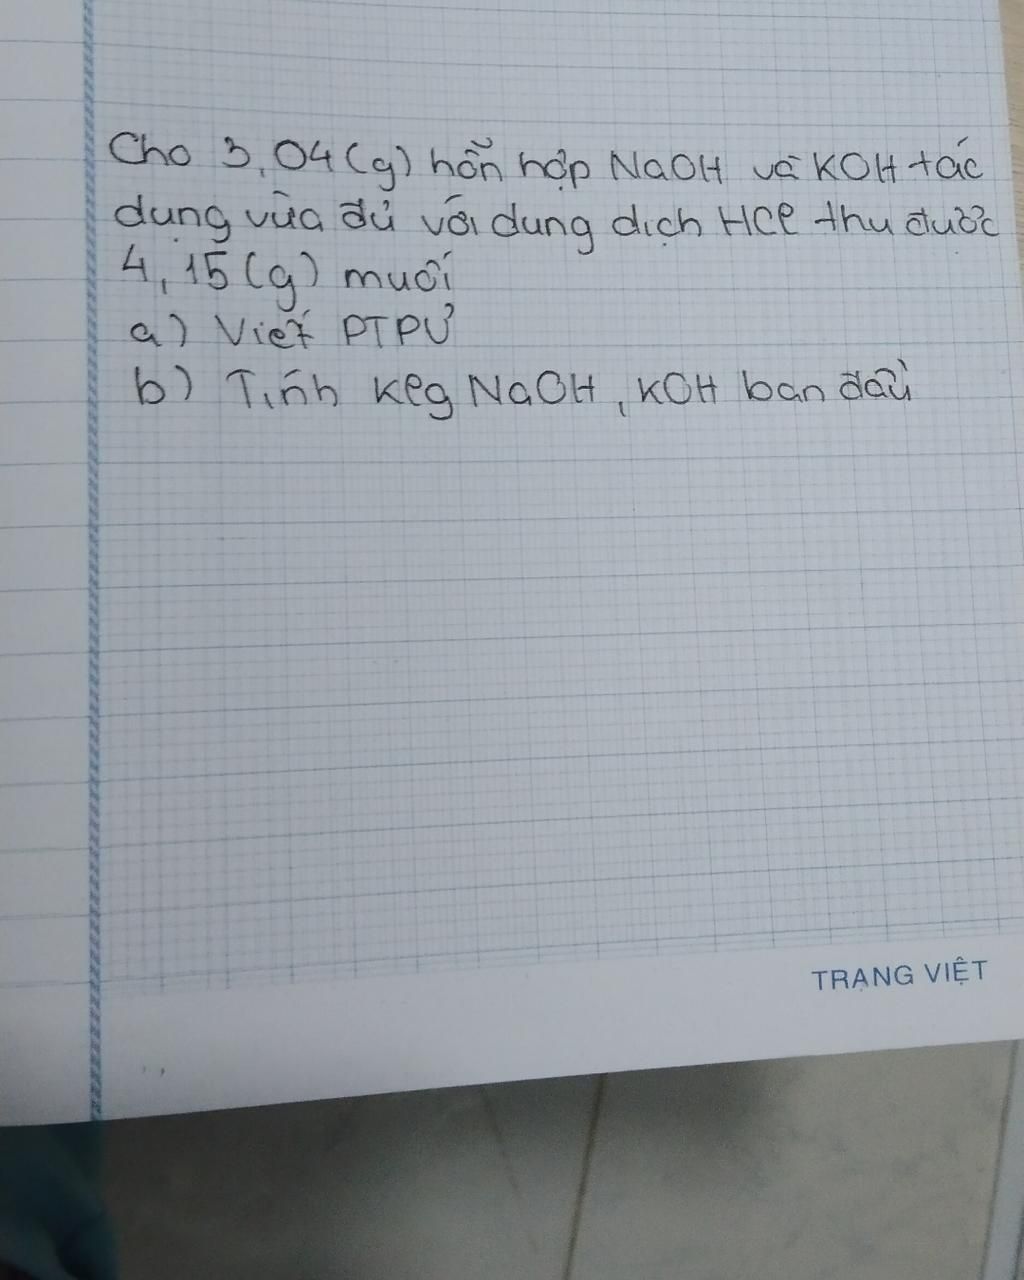 Cho 3,04(g) hỗn hợp NaOH và KOH tác
dụng vừa đủ với dung dịch HCl thu được
4,15(g) muối
a) Viết PTPƯ
b) Tính klg NaOH, KOH ban đầu
TRANG VIỆT